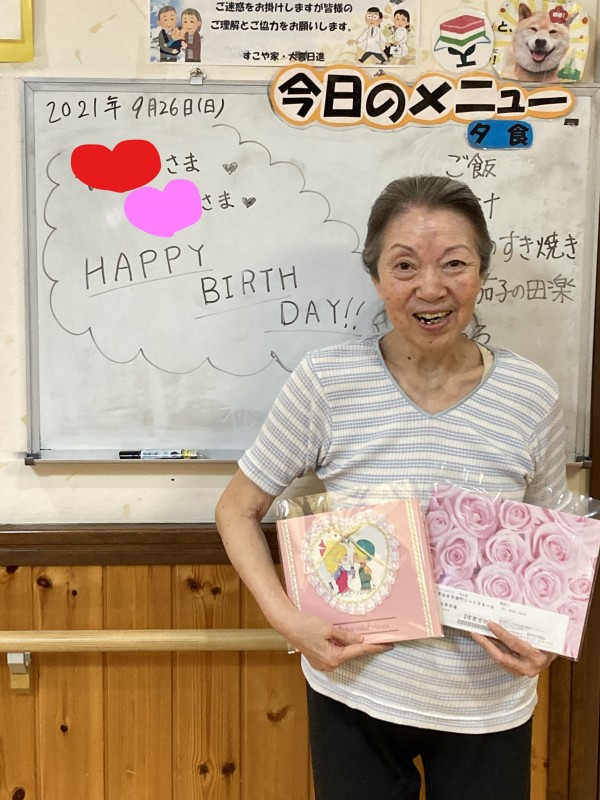 ご迷惑をお掛けしますが皆様の
ご理解とご協力をお願いします。
すこや家・大宮日進
今日のメニュー
夕食
2021年 9月26日(日)
さま
さま
HAPPY
BIRTH
DAY!!
ご飯
すき焼き
茄子の田楽